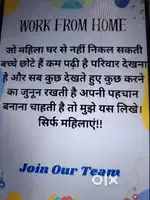 WORK FROM HOME
जो महिला घर से नहीं निकल सकती
बच्चे छोटे हैं कम पढ़ी है परिवार देखना
है और सब कुछ देखते हुए कुछ करने
का जुनून रखती है अपनी पहचान
बनाना चाहती है तो मुझे यस लिखे।
सिर्फ महिलाएं!!
Join Our Team
olx